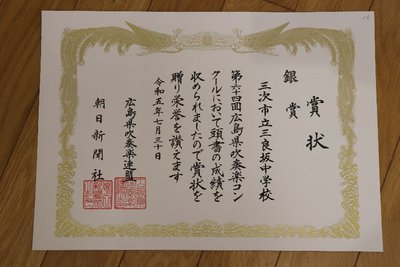 賞状
銀賞
三次市立三良坂中学校
第六十四回広島県吹奏楽コン
クールにおいて頭書の成績を
収められましたので賞状を
贈り栄誉を讃えます
令和五年七月三十日
広島県吹奏楽連盟
朝日新聞社